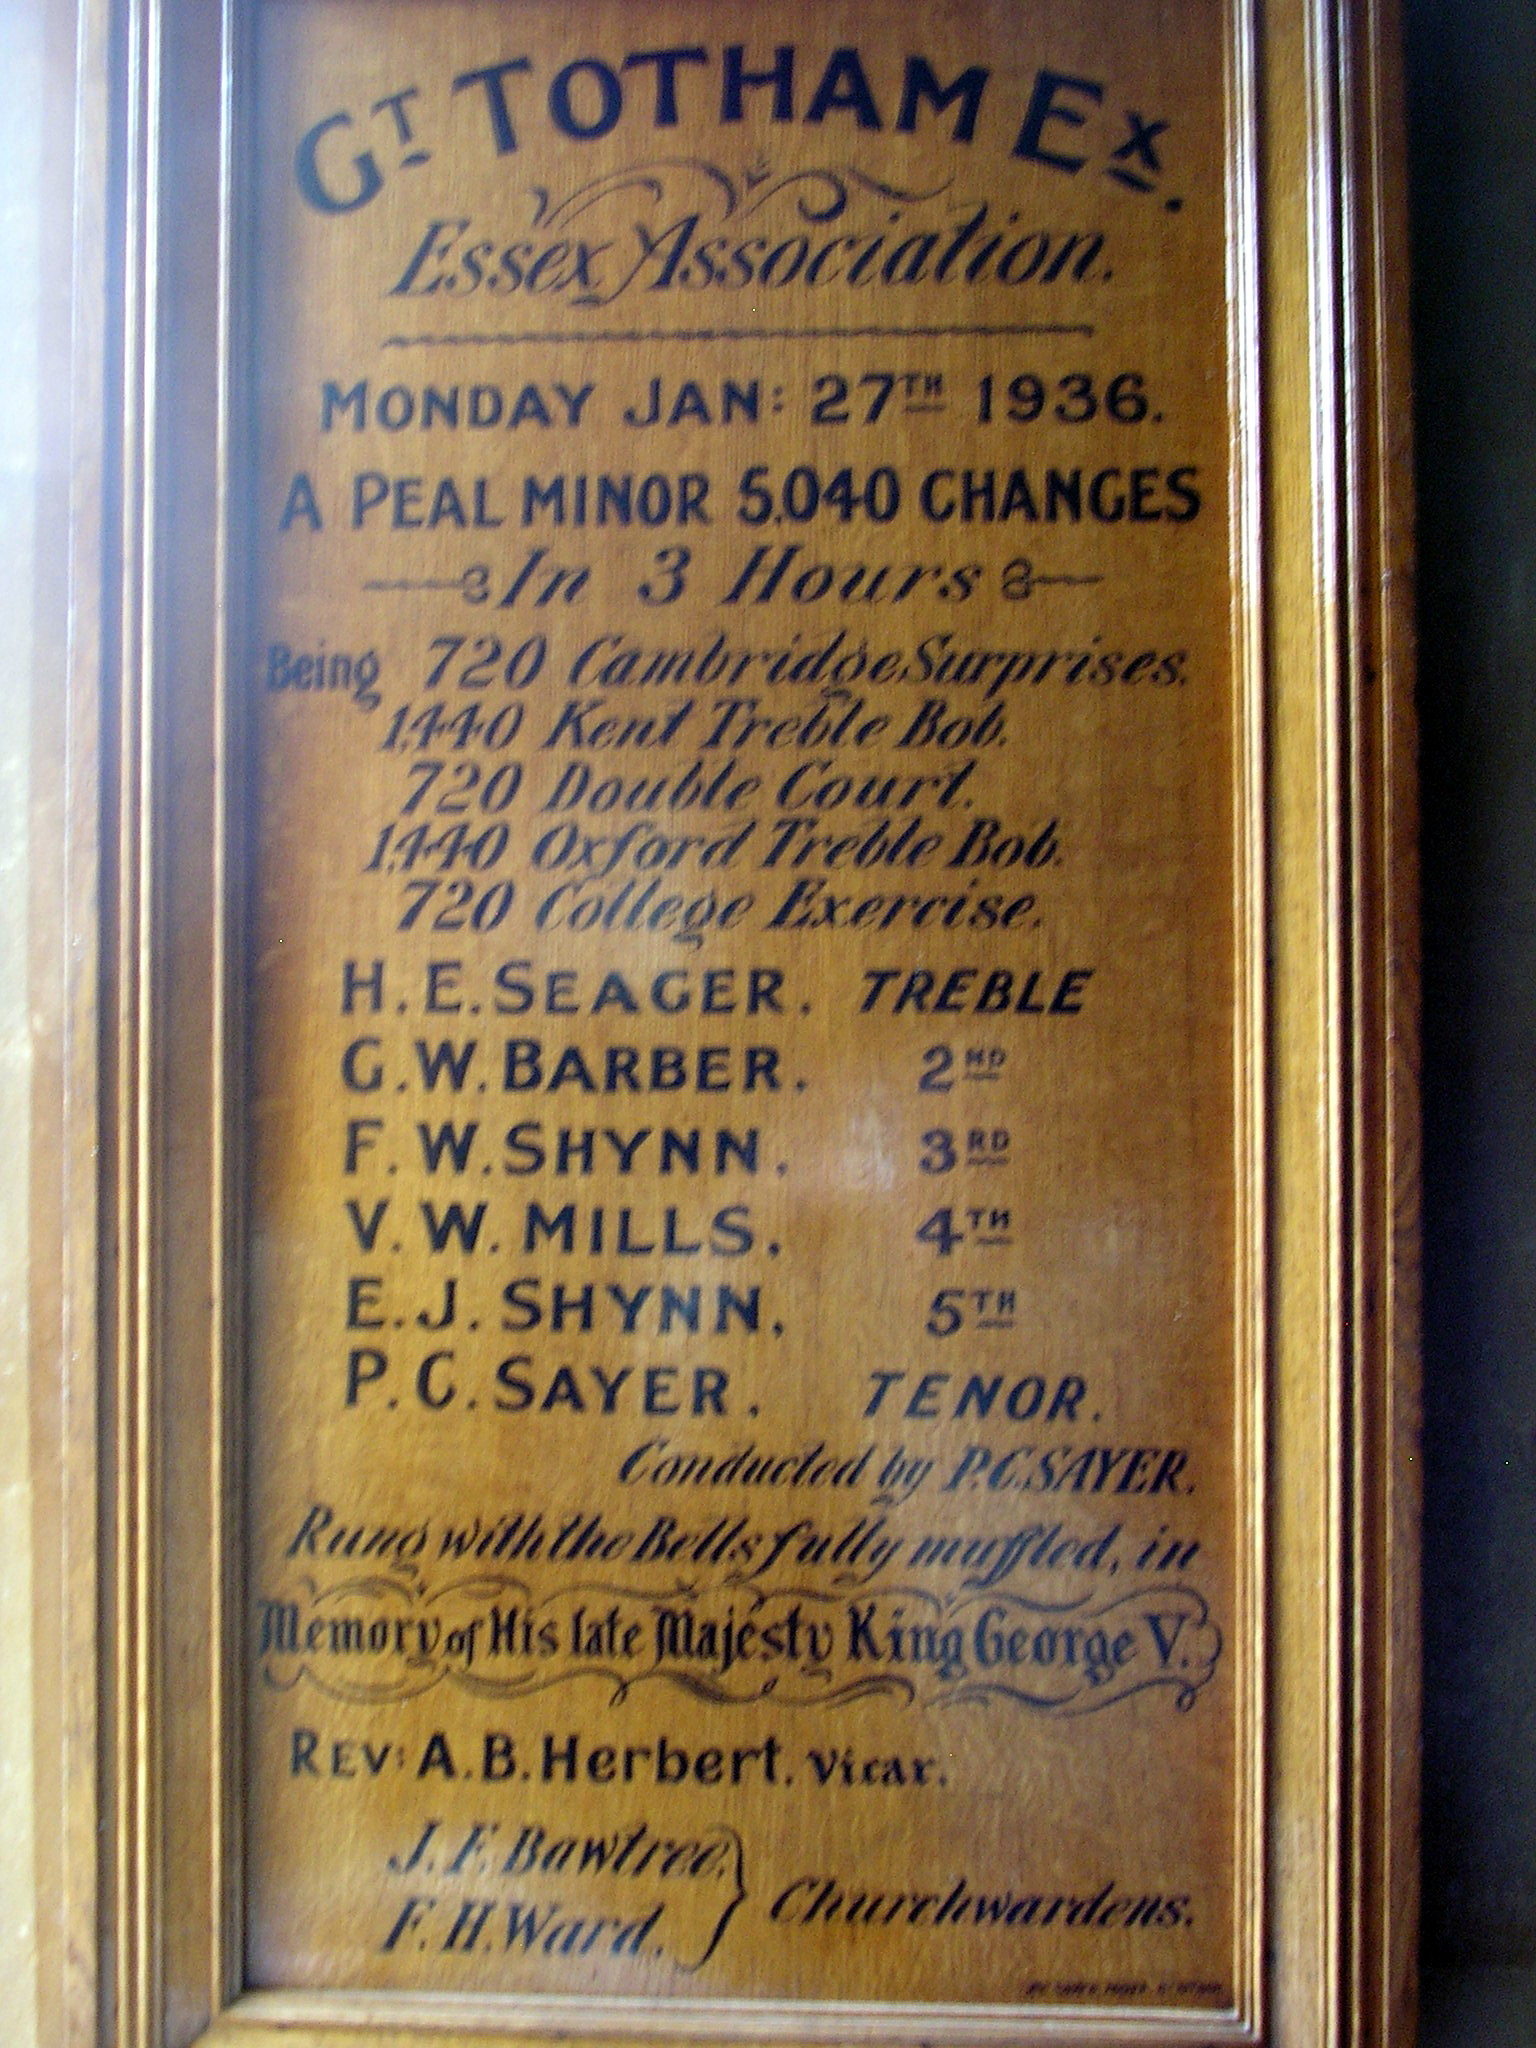 GT TOTHAM EX.
Essex Association.
MONDAY JAN: 27TH 1936.
A PEAL MINOR 5,040 CHANGES
In 3 Hours
Being 720 Cambridge Surprises.
1,440 Kent Treble Bob.
720 Double Court.
1,440 Oxford Treble Bob.
720 College Exercise.
H. E. SEAGER. TREBLE
G. W. BARBER. 2ND
F. W. SHYNN. 3RD
V. W. MILLS. 4TH
E. J. SHYNN. 5TH
P. C. SAYER. TENOR.
Conducted by P.C. SAYER.
Rung with the Bells fully muffled, in
Memory of His late Majesty King George V.
REV: A. B. Herbert. Vicar.
J. F. Bawtree.
F. H. Ward. } Churchwardens.